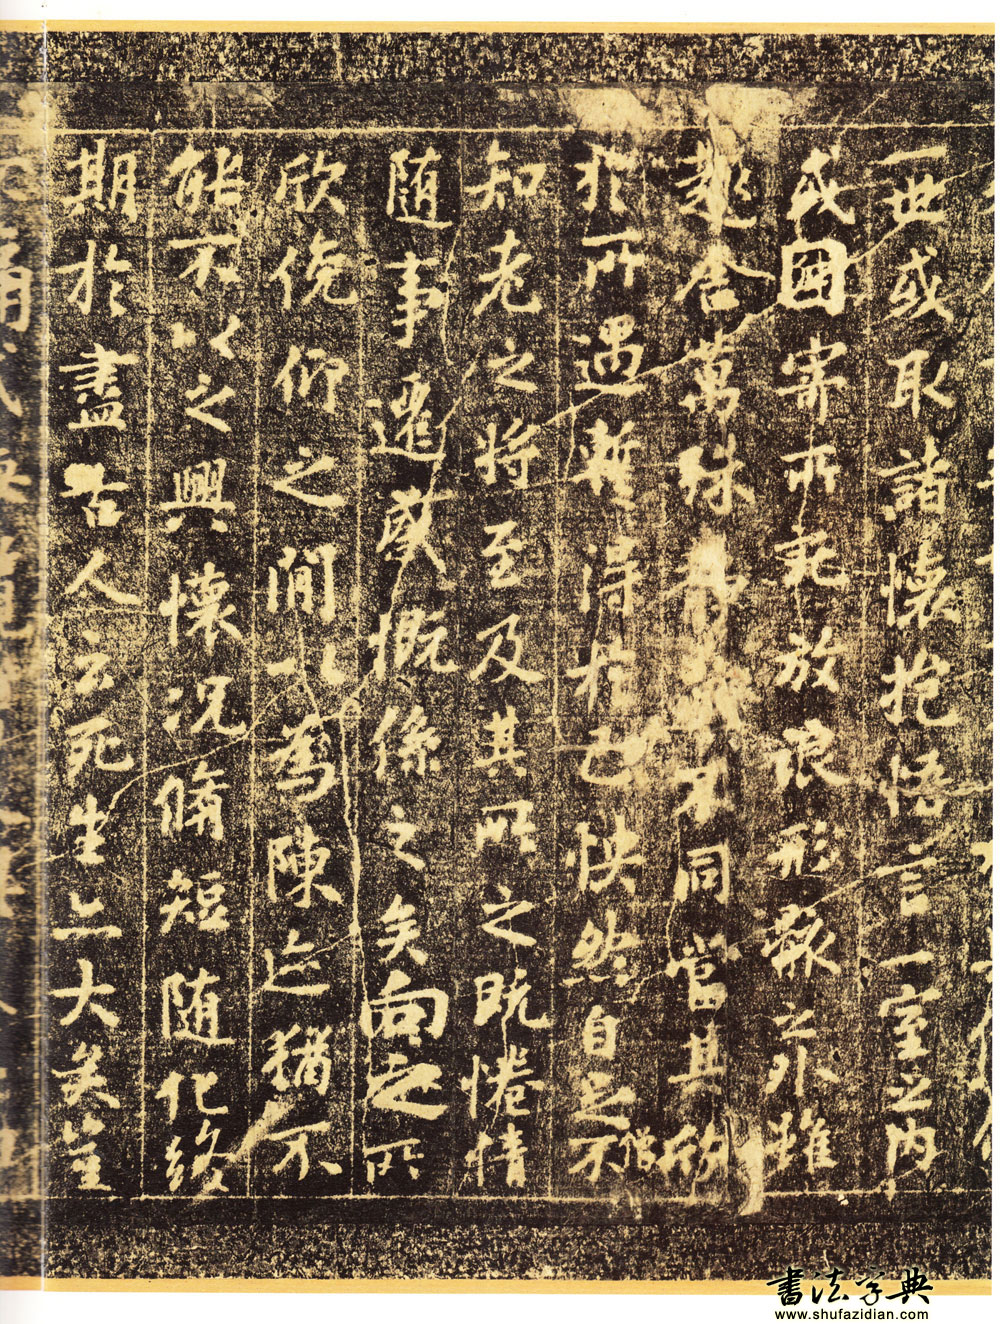 一世或取諸懷抱悟言一室之內
或因寄所託放浪形骸之外雖
趣舍萬殊靜躁不同當其欣
於所遇暫得於己怏然自足不
僧
知老之將至及其所之既惓情
隨事遷感慨係之矣向之所
欣俛仰之間以為陳迹猶不
能不以之興懷況脩短隨化終
期於盡古人云死生亦大矣豈
書法字典
www.shufazidian.com